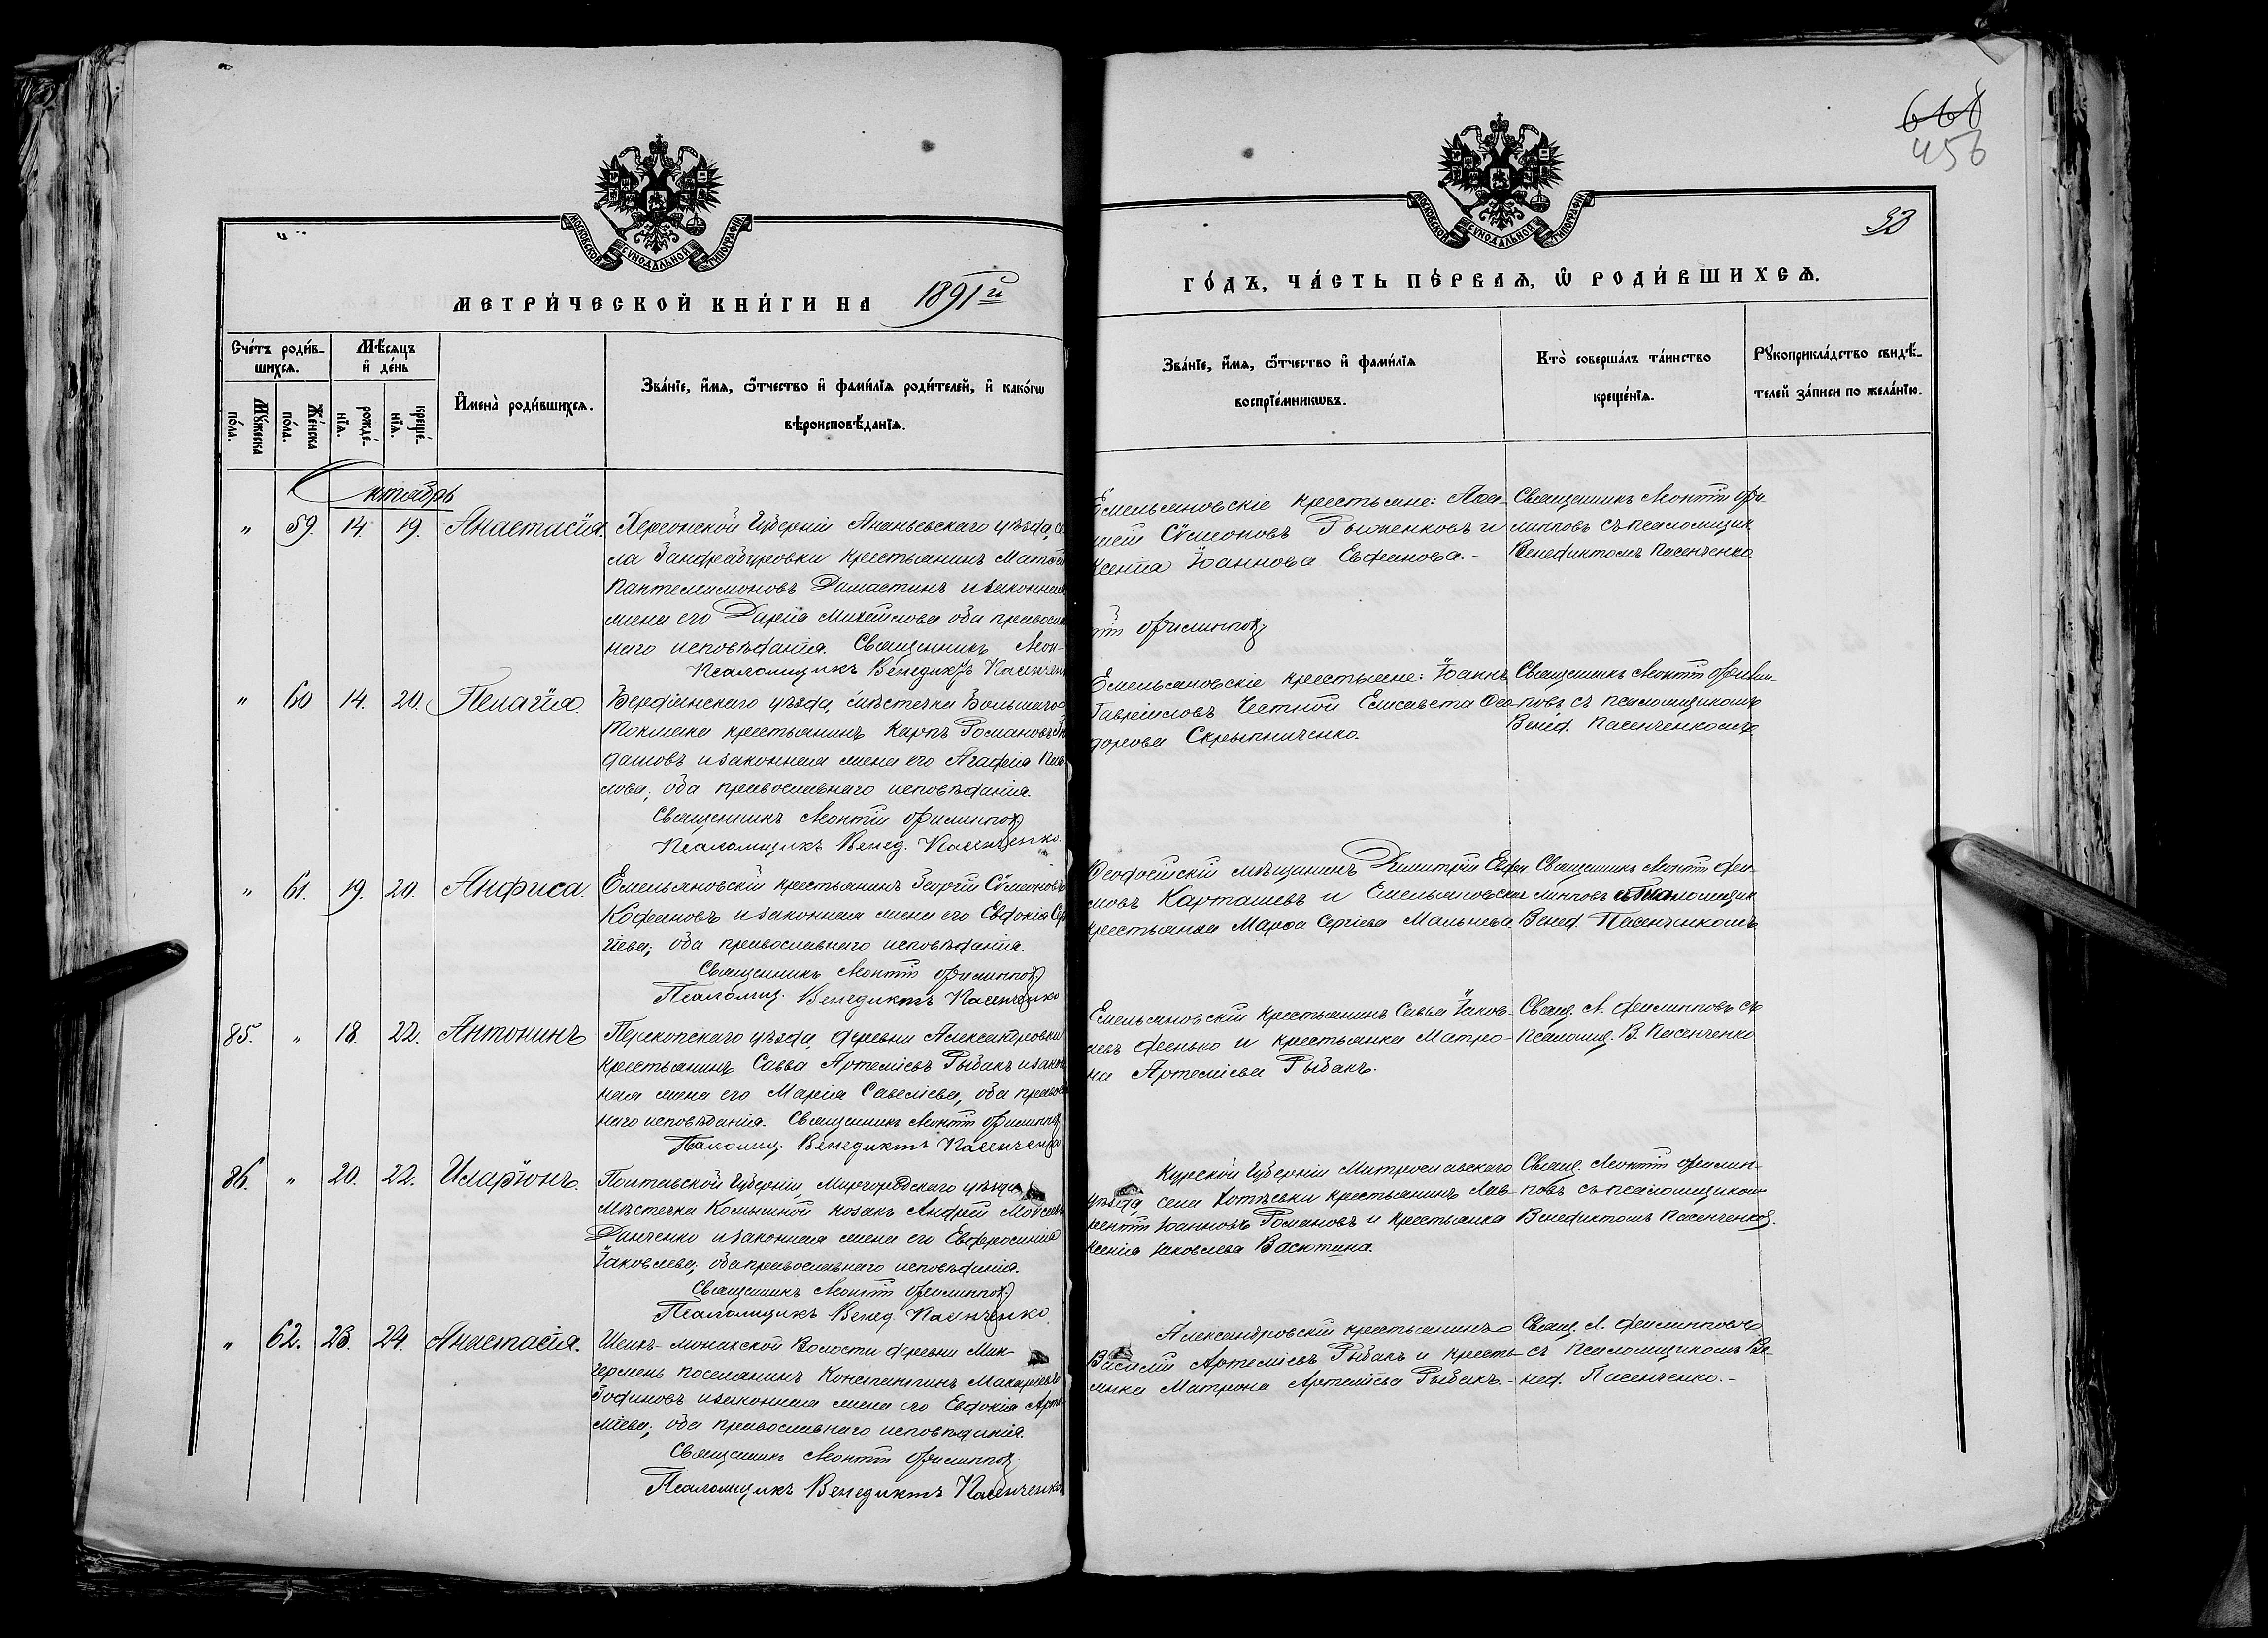 668
456
33
МОСКОВСКОЙ СѴНОДАЛЬНОЙ ТИПОГРАФІИ
МОСКОВСКОЙ СѴНОДАЛЬНОЙ ТИПОГРАФІИ
МЕТРИ́ЧЕСКОЙ КНИ́ГИ НА 1891й
ГО́ДЪ, ЧА́СТЬ ПЕ́РВАѦ, Ѡ РОДИ́ВШИХСѦ.
Сче́тъ роди́в-
шихсѧ.
Мѹ́жеска по́ла.
Же́нска по́ла.
Мѣ́сѧцъ
и де́нь
рожде́-
нїѧ.
креще́-
нїѧ.
Имена̀ роди́вшихсѧ.
Зва́нїе, и́мѧ, ѻ́тчество и фами́лїѧ роди́телей, и како́гѡ
вѣроисповѣ́данїѧ.
Зва́нїе, и́мѧ, ѻ́тчество и фами́лїѧ
воспрїе́мникѡвъ.
Кто̀ соверша́лъ та́инство
креще́нїѧ.
Рѹкоприкла́дство свидѣ́-
телей за́писи по жела́нїю.
Октябрь
" 59. 14. 19. Анастасія.
Херсонской губерніи Ананьевскаго уѣзда, се
ла крестьянинъ Матѳей
Пантелеимоновъ Даластинъ и законная
жена его Дарія Михайлова оба православ
наго исповѣданія. Священникъ Леон-
Псаломщикъ Венедиктъ Пасенчен
Емельяновскіе крестьяне:
Сѵмеоновъ Рыженковъ и
Ксенія Іоаннова Евфанова.-
тій Филиппов
Священникъ Леонтій Фи
липповъ съ псаломщик
Венедиктомъ Пасенченко.
" 60 14. 20. Пелагія.
Бердянскаго уѣзда, мѣстечка Большаго
Токмака крестьянинъ Карпъ Романовъ
дашовъ и законная жена его Агафія Пав
лова; оба православнаго исповѣданія.
Священникъ Леонтій Филиппов
Псаломщикъ Венед. Пасенченко.
Емельяновскіе крестьяне: Іоаннъ
Гавріиловъ Честной Елисавета Ѳео-
дорова Скрыпниченко.
Священникъ Леонтій Филип-
повъ съ псаломщикомъ
Венед. Пасенченкомъ
" 61. 19. 20. Анфиса.
Емельяновскій крестьянинъ Георгій Сѵмеоновъ
Кофановъ и законная жена его Евдокія Сер
гіева; оба православнаго исповѣданія.
Священникъ Леонтій Филиппов
Псаломщ. Венедиктъ Пасенченко
Ѳеодосійскій мѣщанинъ Димитрій Евфи
мовъ Карташевъ и Емельяновская
крестьянка Марѳа Сергіева Мальнева
Священникъ Леонтій Фи-
липповъ съ псаломщик
Венед. Пасенченкомъ
85. " 18. 22. Антонинъ
Перекопскаго уѣзда, деревни Александровки
крестьянинъ Савва Артеміевъ Рыбакъ и закон
ная жена его Марія Савеліева, оба правос
наго исповѣданія. Священникъ Леонтій Филиппов
Псаломщ. Венедиктъ Пасенченко
Емельяновскій крестьянинъ Савва Іаков-
левъ Фенько и крестьянка Матро-
на Артеміева Рыбакъ.
Свящ. Л. Филипповъ съ
Псаломщ. В. Пасенченко
86. " 20. 22. Иларіонъ.
Полтавской губерніи Миргородскаго уѣзда,
Мѣстечка Комышной козакъ Андрей Моисеевъ
Данченко и законная жена его Евфросинія
Іаковлева; оба православнаго исповѣданія.
Священникъ Леонтій Филиппов
Псаломщикъ Венед. Пасенченко
Курской губерніи
уѣзда, села крестьянинъ Лав-
рентій Іоанновъ Романовъ и крестьянка
Ксенія Іаковлева Васютина.
Свящ. Леонтій Филип-
повъ съ псаломщиком
Венедиктомъ Пасенченко.
" 62. 23. 24. Анастасія.
Шеихъ-Монахской Волости деревни
поселянинъ Константинъ Макаріевъ
Годиновъ и законная жена его Евдокія Арте
міева; оба православнаго исповѣданія.
Священникъ Леонтій Филиппов
Псаломщикъ Венедиктъ Пасенченко
Александровскій крестьянинъ
Василій Артеміевъ Рыбакъ и кресть-
янка Матрона Артеміева Рыбакъ.-
Свящ. Л. Филипповъ
съ псаломщикомъ Ве-
нед. Пасенченко.-